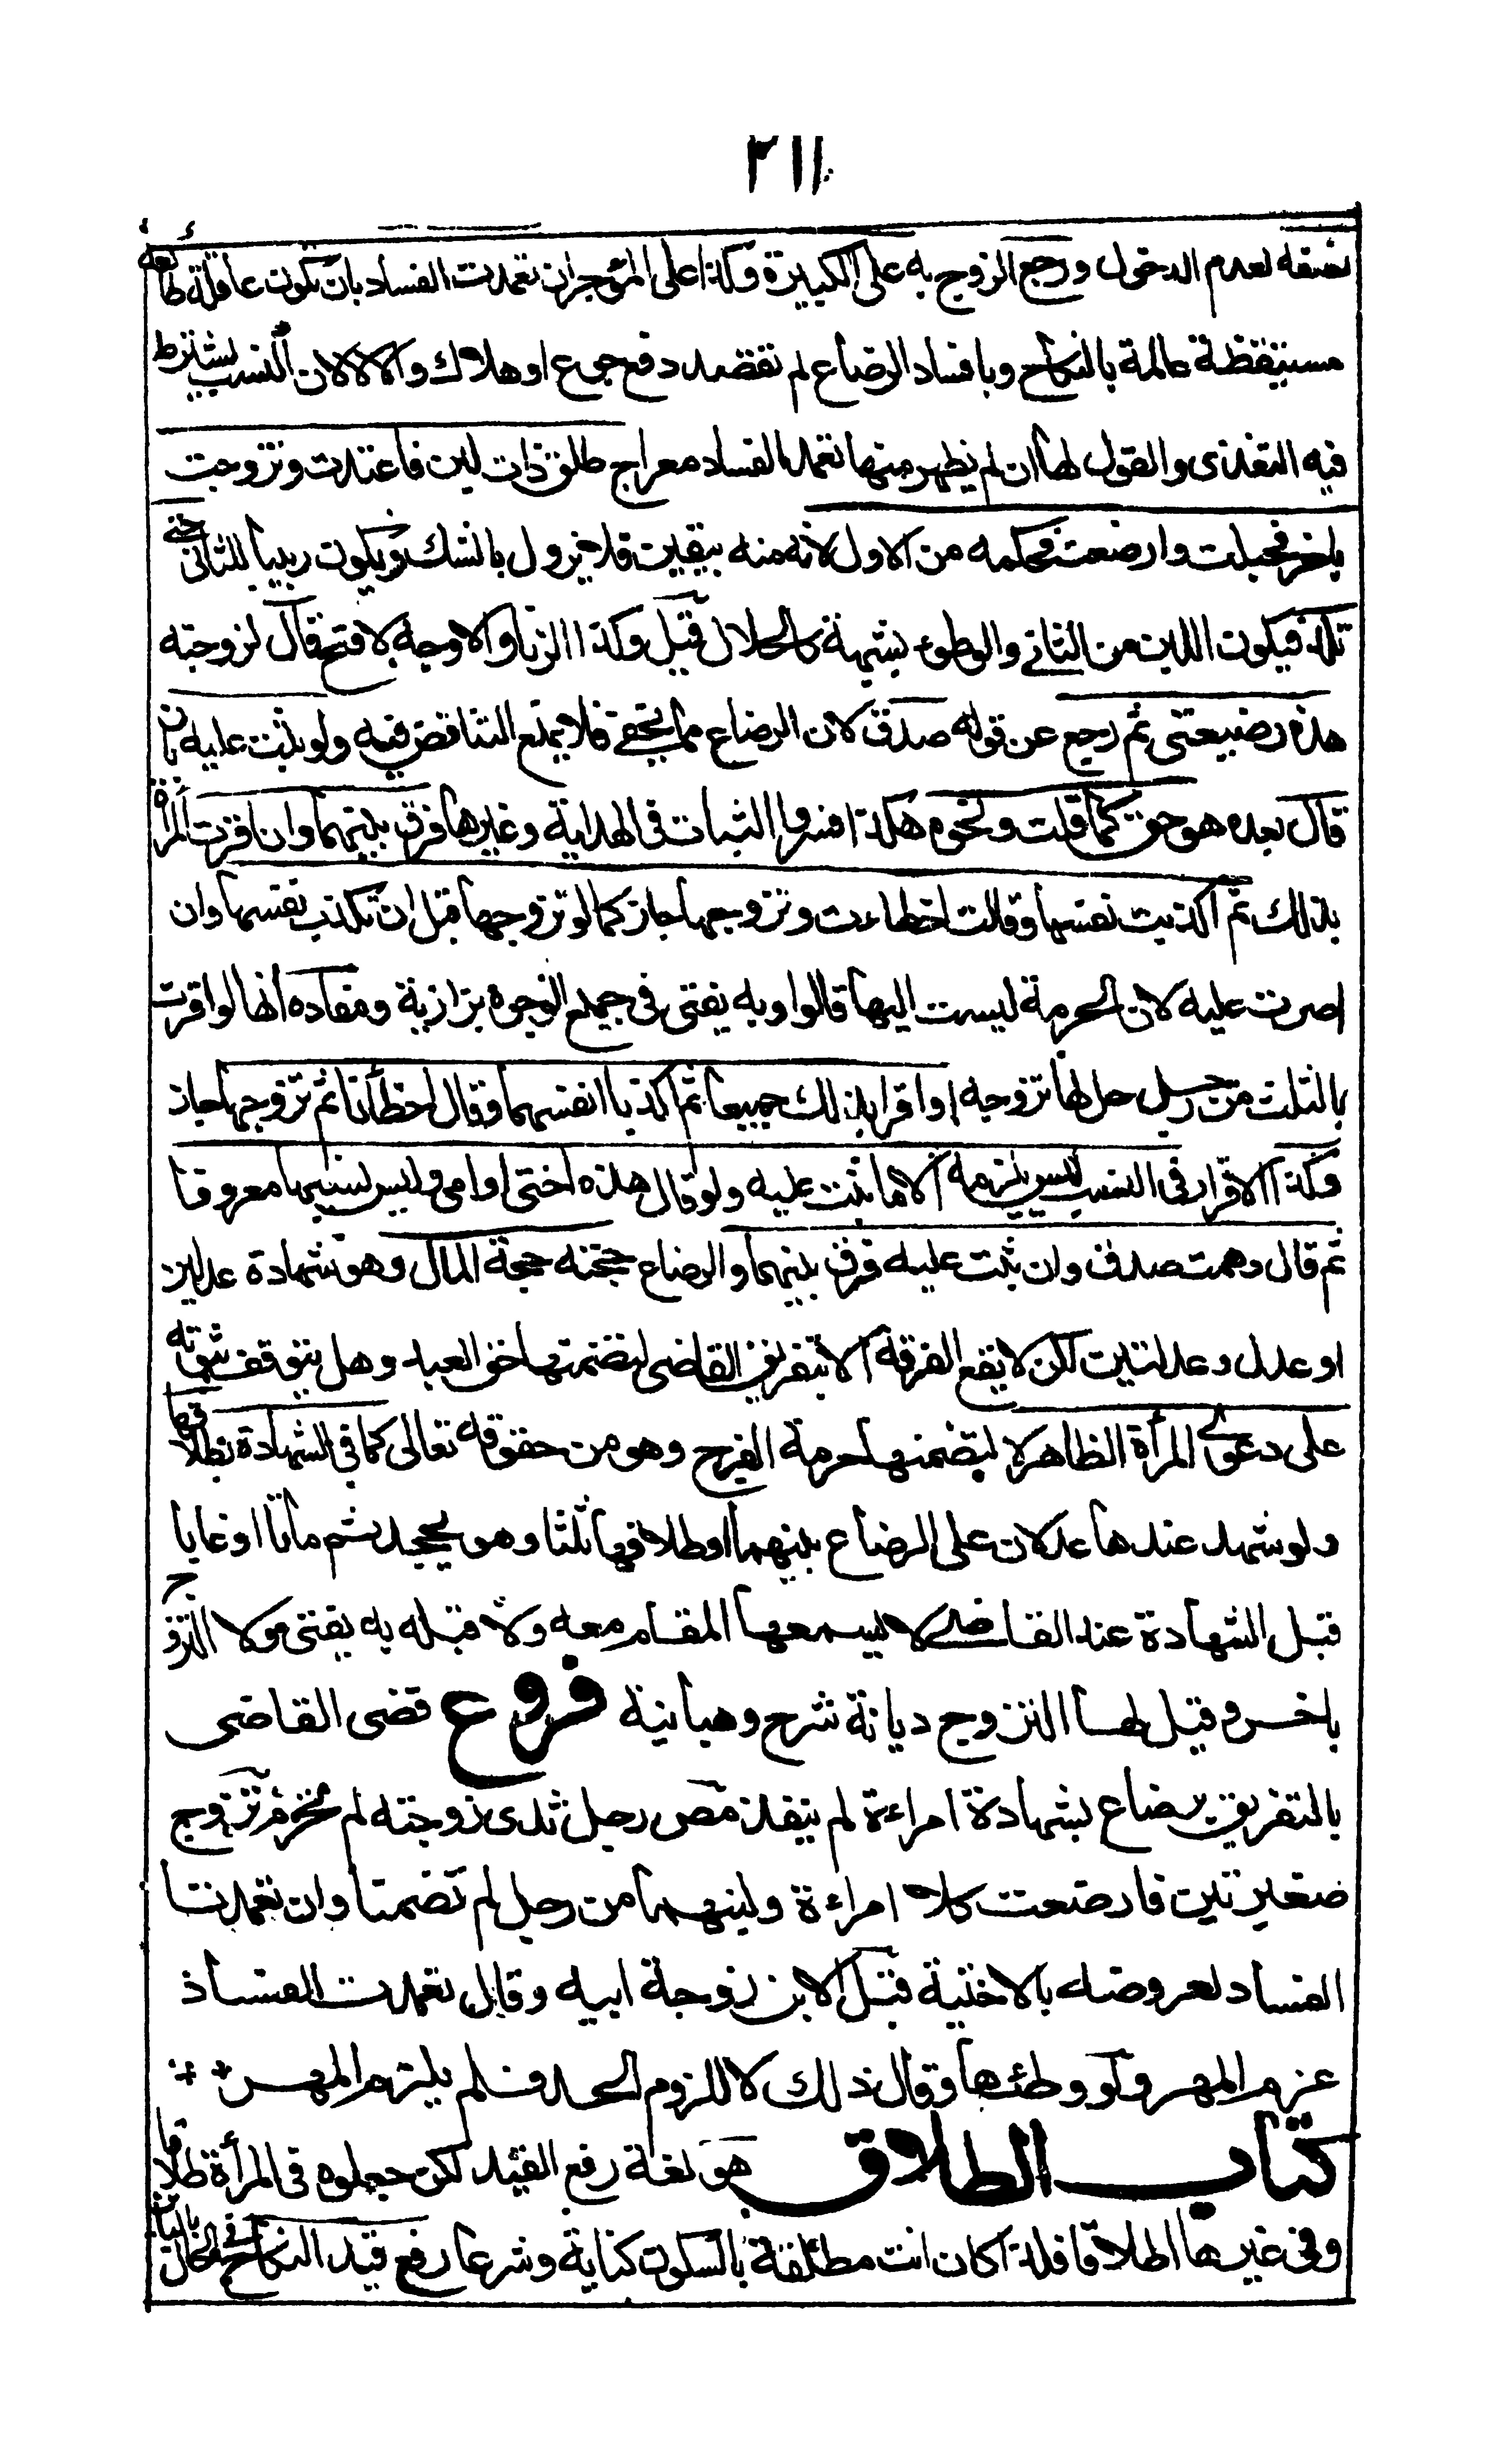 ٢١١
نصفه لعدم الدخول ورجع الزوج به على الكبيرة وكذا على المؤجر ان تعمدت الفساد بان تكون عاقلة طائعة
مستيقظة عالمة بالنكاح وبافساد الرضاع لم تقصد دفع جوع او هلاك والا لا لان التسبب يشترط
فيه التعدى والقول لها ان لم يظهر منها تعمد الفساد معراج طلق ذات لبن فاعتدت وتزوجت
باخر فحبلت وارضعت فحكمه من الاول لانه منه بيقين فلا يزول بالشك ويكون ربيبا للثانى حتى
تلد فيكون اللبن من الثانى والوطوء بشبهة كالحلال قيل وكذا الزنا والاوجه لا فتح قال لزوجته
هذه رضيعتى ثم رجع عن قوله صدق لان الرضاع مما يخفى فلا يمنع التناقض فيه ولو ثبت عليه بان
قال بعده هو حق كما قلت ونحوه هكذا فسروا الثبات فى الهداية وغيرها فرق بينهما وان اقرت المرأة
بذلك ثم اكذبت نفسها وقالت اخطاءت وتزوجها جاز كما لو تزوجها قبل ان تكذب نفسها وان
اصرت عليه لان الحرمة ليست اليها قالوا وبه يفتى فى جميع الوجوه بزازية ومفاده انها لو اقرت
بالثلث من رجل حل لها تزوجه او اقرا بذلك جميعا ثم اكذبا انفسهما وقال اخطأنا ثم تزوجها جاز
وكذا الاقرار فى النسب ليس يلزمه الا ما ثبت عليه ولو قال هذه اختى او امى وليس نسبها معروفا
ثم قال وهمت صدق وان ثبت عليه فرق بينهما والرضاع حجته حجة المال وهو شهادة عدلين
او عدل وعدلتين لكن لا يقع الفرقة الا بتفريق القاضى لتضمنها حق العبد وهل يتوقف ثبوته
على دعوى المرأة الظاهر لا لتضمنها حرمة الفرج وهو من حقوقه تعالى كما فى الشهادة بطلاقها
ولو شهد عندها عدلان على الرضاع بينهما او طلاقها ثلثا وهو يجحد ثم ماتا او غابا
قبل الشهادة عند القاضى لا يسعها المقام معه ولا قتله به يفتى ولا التزوج
باخر وقيل لها التزوج ديانة شرح وهبانية فروع قضى القاضى
بالتفريق برضاع بشهادة امراءة لم ينفذ مص رجل ثدى زوجته لم تحرم تزوج
صغيرتين فارضعت كلا امراءة ولبنهما من رجل لم تضمنا وان تعمدتا
الفساد لعروضه بالاختية قبل الابن زوجة ابيه وقال تعمدت الفساد
غرم المهر ولو وطئها وقال ذلك لا للزوم الحد فلم يلزم المهر
كتاب الطلاق هو لغة رفع القيد لكن جعلوه فى المرأة طلاقا
وفى غيرها اطلاقا فلذا كان انت مطلقة بالسكون كناية وشرعا رفع قيد النكاح فى الحال بالبائن